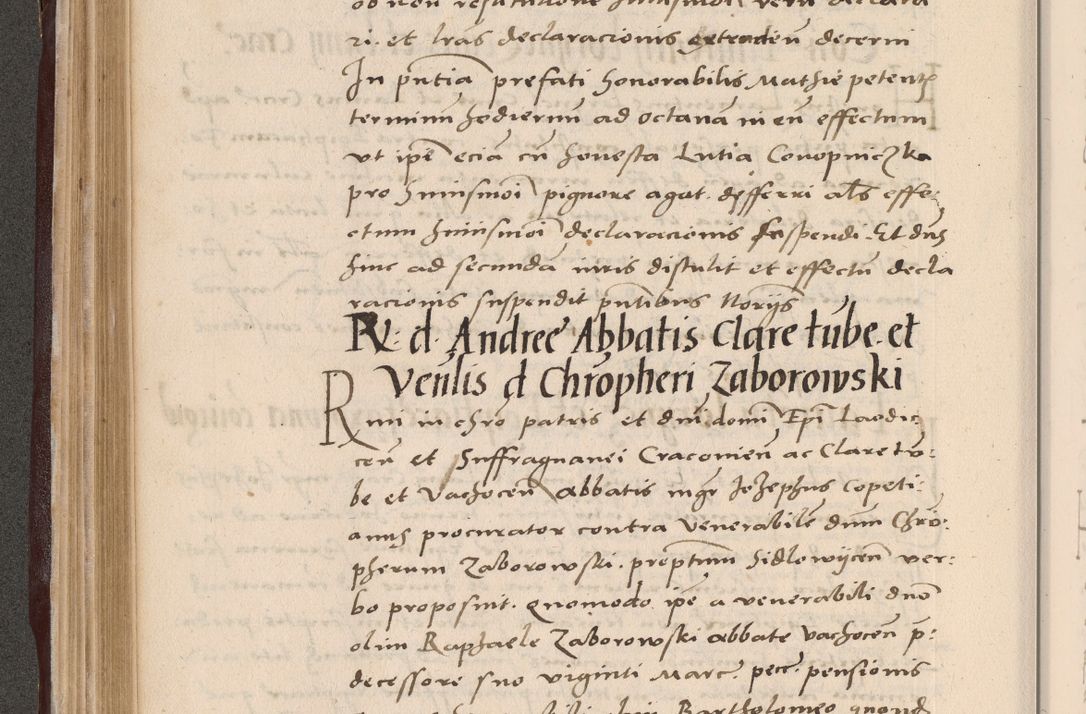 ob non restitucione huiusmodi veru declara
ri. et lras declaracionis extraden decerni
In pntia prefati honorabilis Mathie petentis
terminu hodiernu ad octana in eu effectum
ut ipe ecia cu honesta Lutia Conopniczka
pro huiusmoi pignore agat. differri als effe:
ctum huiusmoi declaracionis suspendi. Et dns
hinc ad secunda iuris distulit et effectu decla
racionis suspendit pntibus Norijs
Rx: d. Andree Abbatis Clare tube. et
Venlis d Chropheri Zaborowski
Rmi in chro patris et dni domi Epi Laodic:
cen et Suffraganei Cracomien ac Clare tu:
be et Vachocen abbatis mgr Jozephus Copeti:
anus procurator contra venerabile dum Chro:
pherum Zaborowski. preptum Sidlowijcen ver:
bo proposuit. quomodo ipe a venerabili dno
olim Raphaele Zaborowski abbate Vachocen p:
decessore suo viginti Marc. pecc. pensionis
Bartholomeo quond